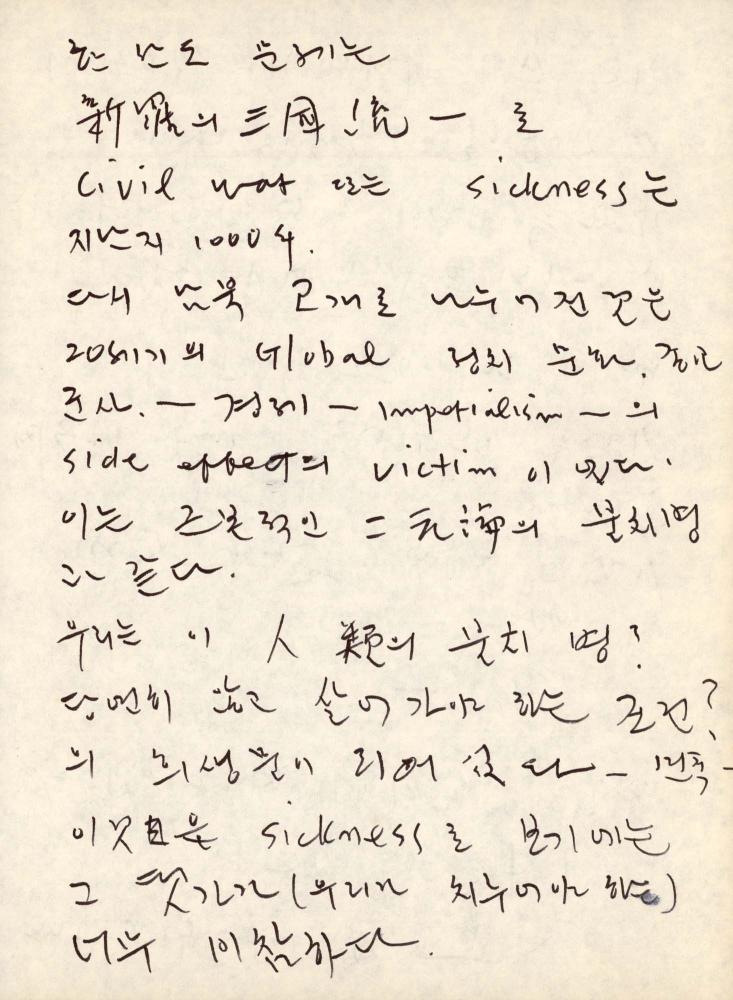 한 반도 문제는
新羅의 三國 統一 로
Civil war 또는 sickness는
지난지 1000年.
다시 남북 고개로 나누어 진 것은
20세기의 Global 정치 문화, 그리고
군사. — 경제 — imperialism — 의
side effect의 victim 이 였다.
이는 근본적인 二元論의 불치병
과 같다.
우리는 이 人類의 불치 병?
당연히 안고 살어 가야 하는 조건?
의 희생물이 되어 왔다 — 민족 -
이것을 sickness로 보기에는
그 댓가가 (우리가 치루어야 하는)
너무 비참하다.